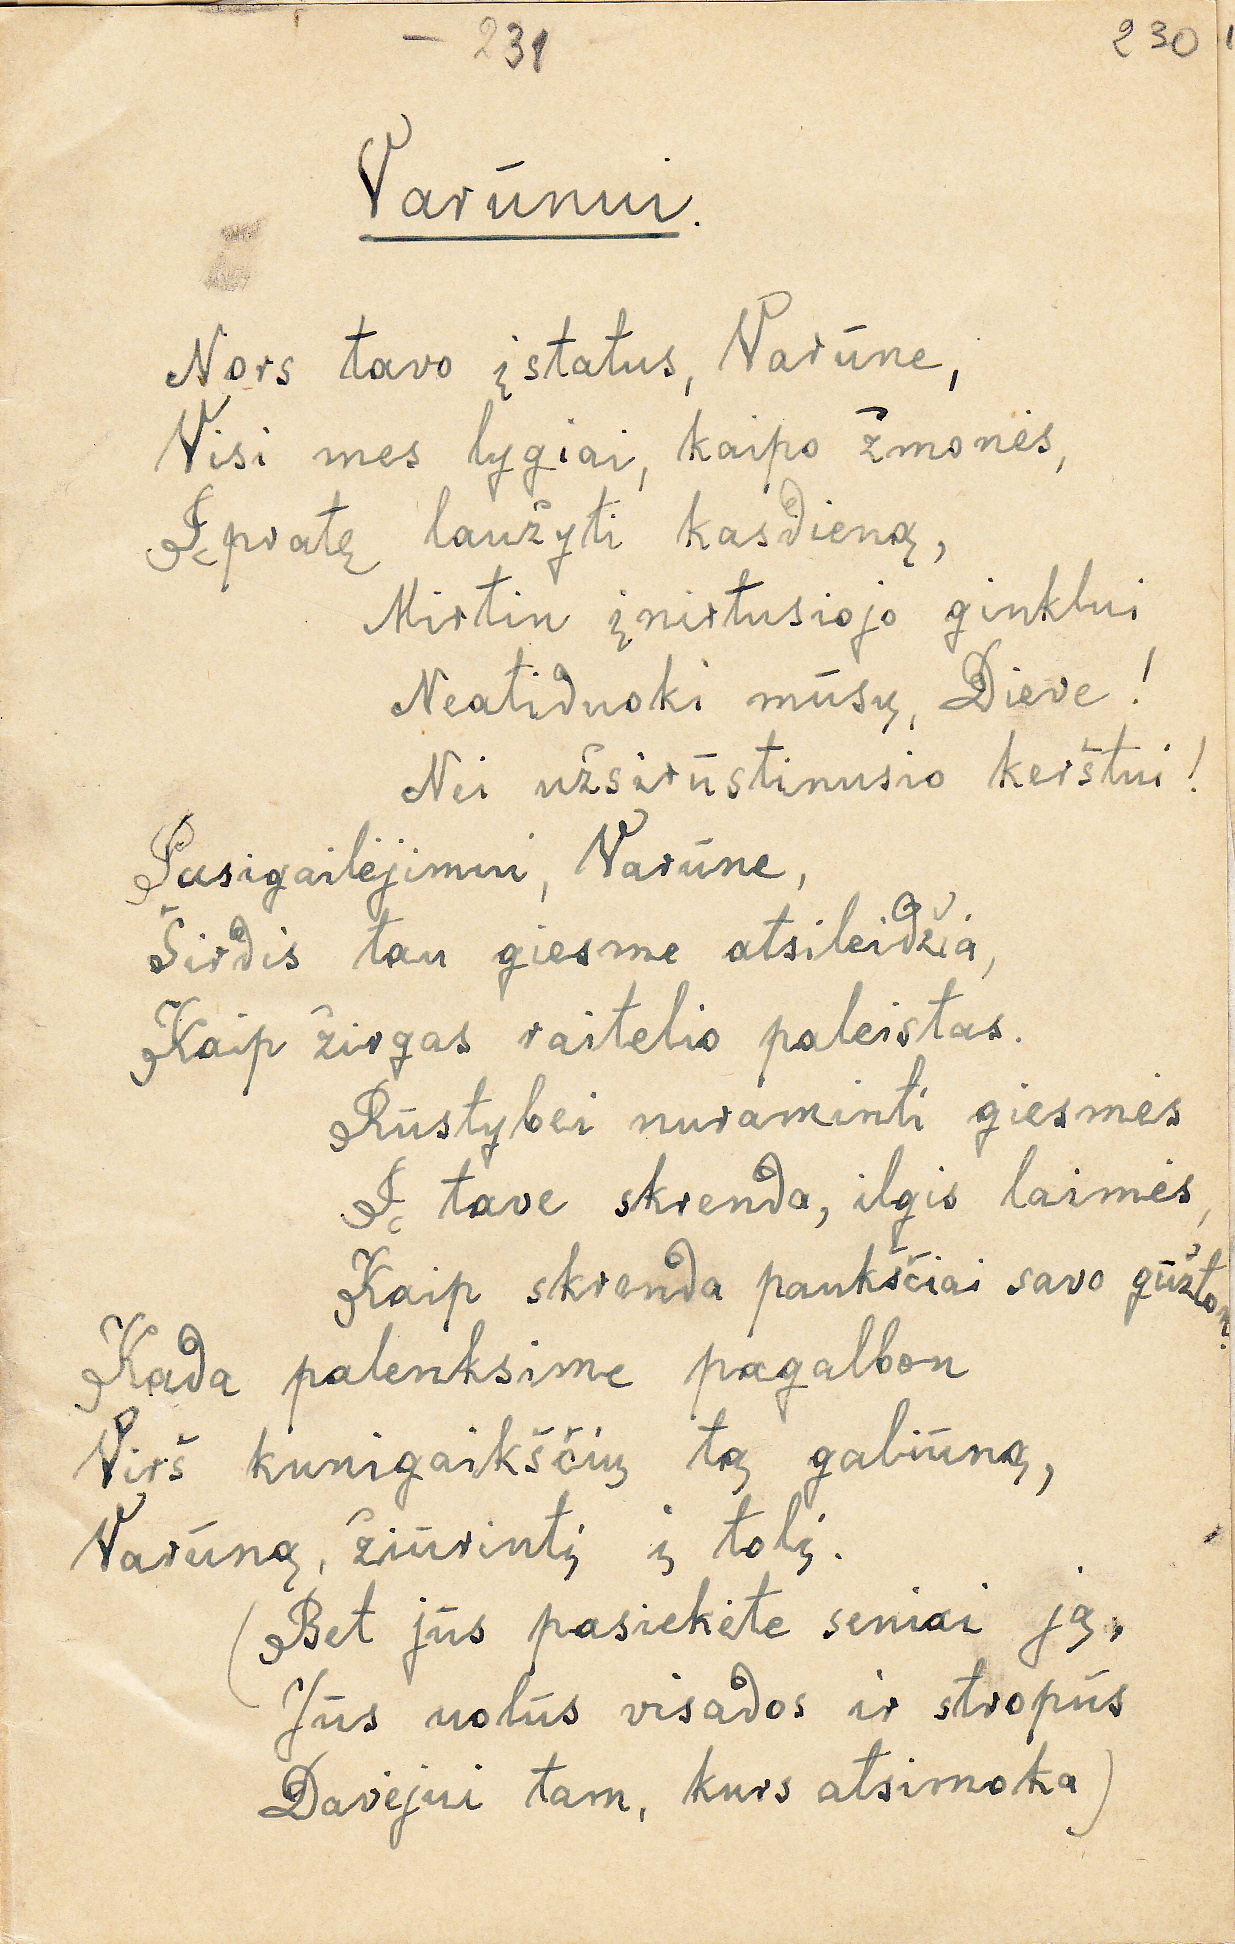 – 231
230
Varūnui.
Nors tavo įstatus, Varūne,
Visi mes lygiai, kaipo žmonės,
Įpratę laužyti kasdieną,
Mirtin įnirtusiojo ginklui
Neatiduoki mūsų, Dieve!
Nei užsirūstinusio kerštui!
Pasigailėjimui, Varūne,
Širdis tau giesme atsileidžia,
Kaip žirgas raitelio paleistas.
Rūstybei nuraminti giesmės
Į tave skrenda, ilgis laimės,
Kaip skrenda paukščiai savo gūžton.
Kada palenksime pagalbon
Virš kunigaikščių tą galiūną,
Varūną, žiūrintį į tolį.
(Bet jūs pasiekėte seniai ją,
Jūs uolūs visados ir stropūs
Davėjui tam, kurs atsimoka)